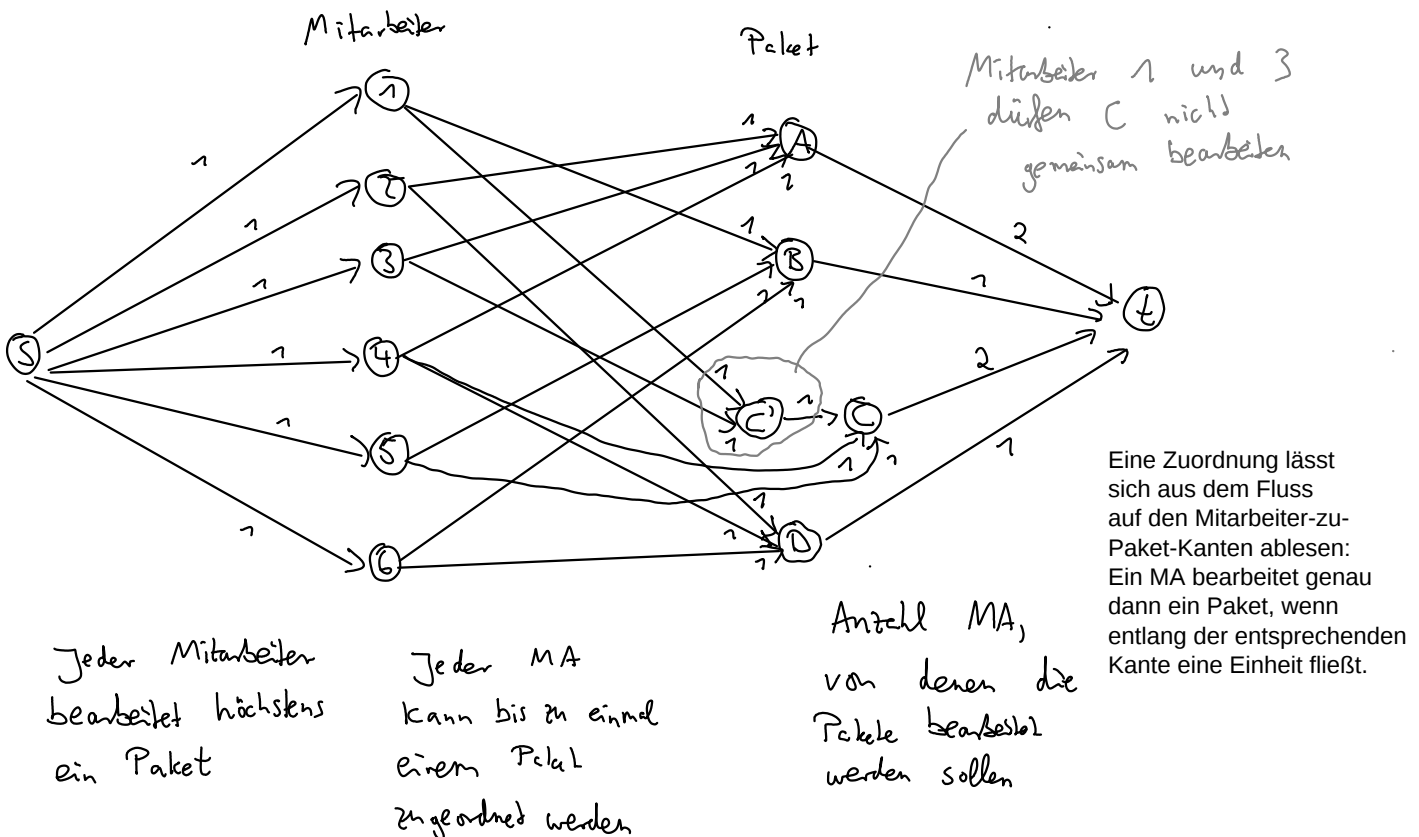 Mitarbeiter
Paket
Mitarbeiter 1 und 3
dürfen C nicht
gemeinsam bearbeiten
1
1
A
1
1
1
1
2
2
1
1
B
1
3
1
1
1
1
t
S
1
4
1
2
1
C'
1
C
1
5
1
1
1
1
1
1
1
D
1
6
Eine Zuordnung lässt
sich aus dem Fluss
auf den Mitarbeiter-zu-
Paket-Kanten ablesen:
Ein MA bearbeitet genau
dann ein Paket, wenn
entlang der entsprechenden
Kante eine Einheit fließt.
Jeder Mitarbeiter
bearbeitet höchstens
ein Paket
Jeder MA
kann bis zu einmal
einem Paket
zugeordnet werden
Anzahl MA,
von denen die
Pakete bearbeitet
werden sollen